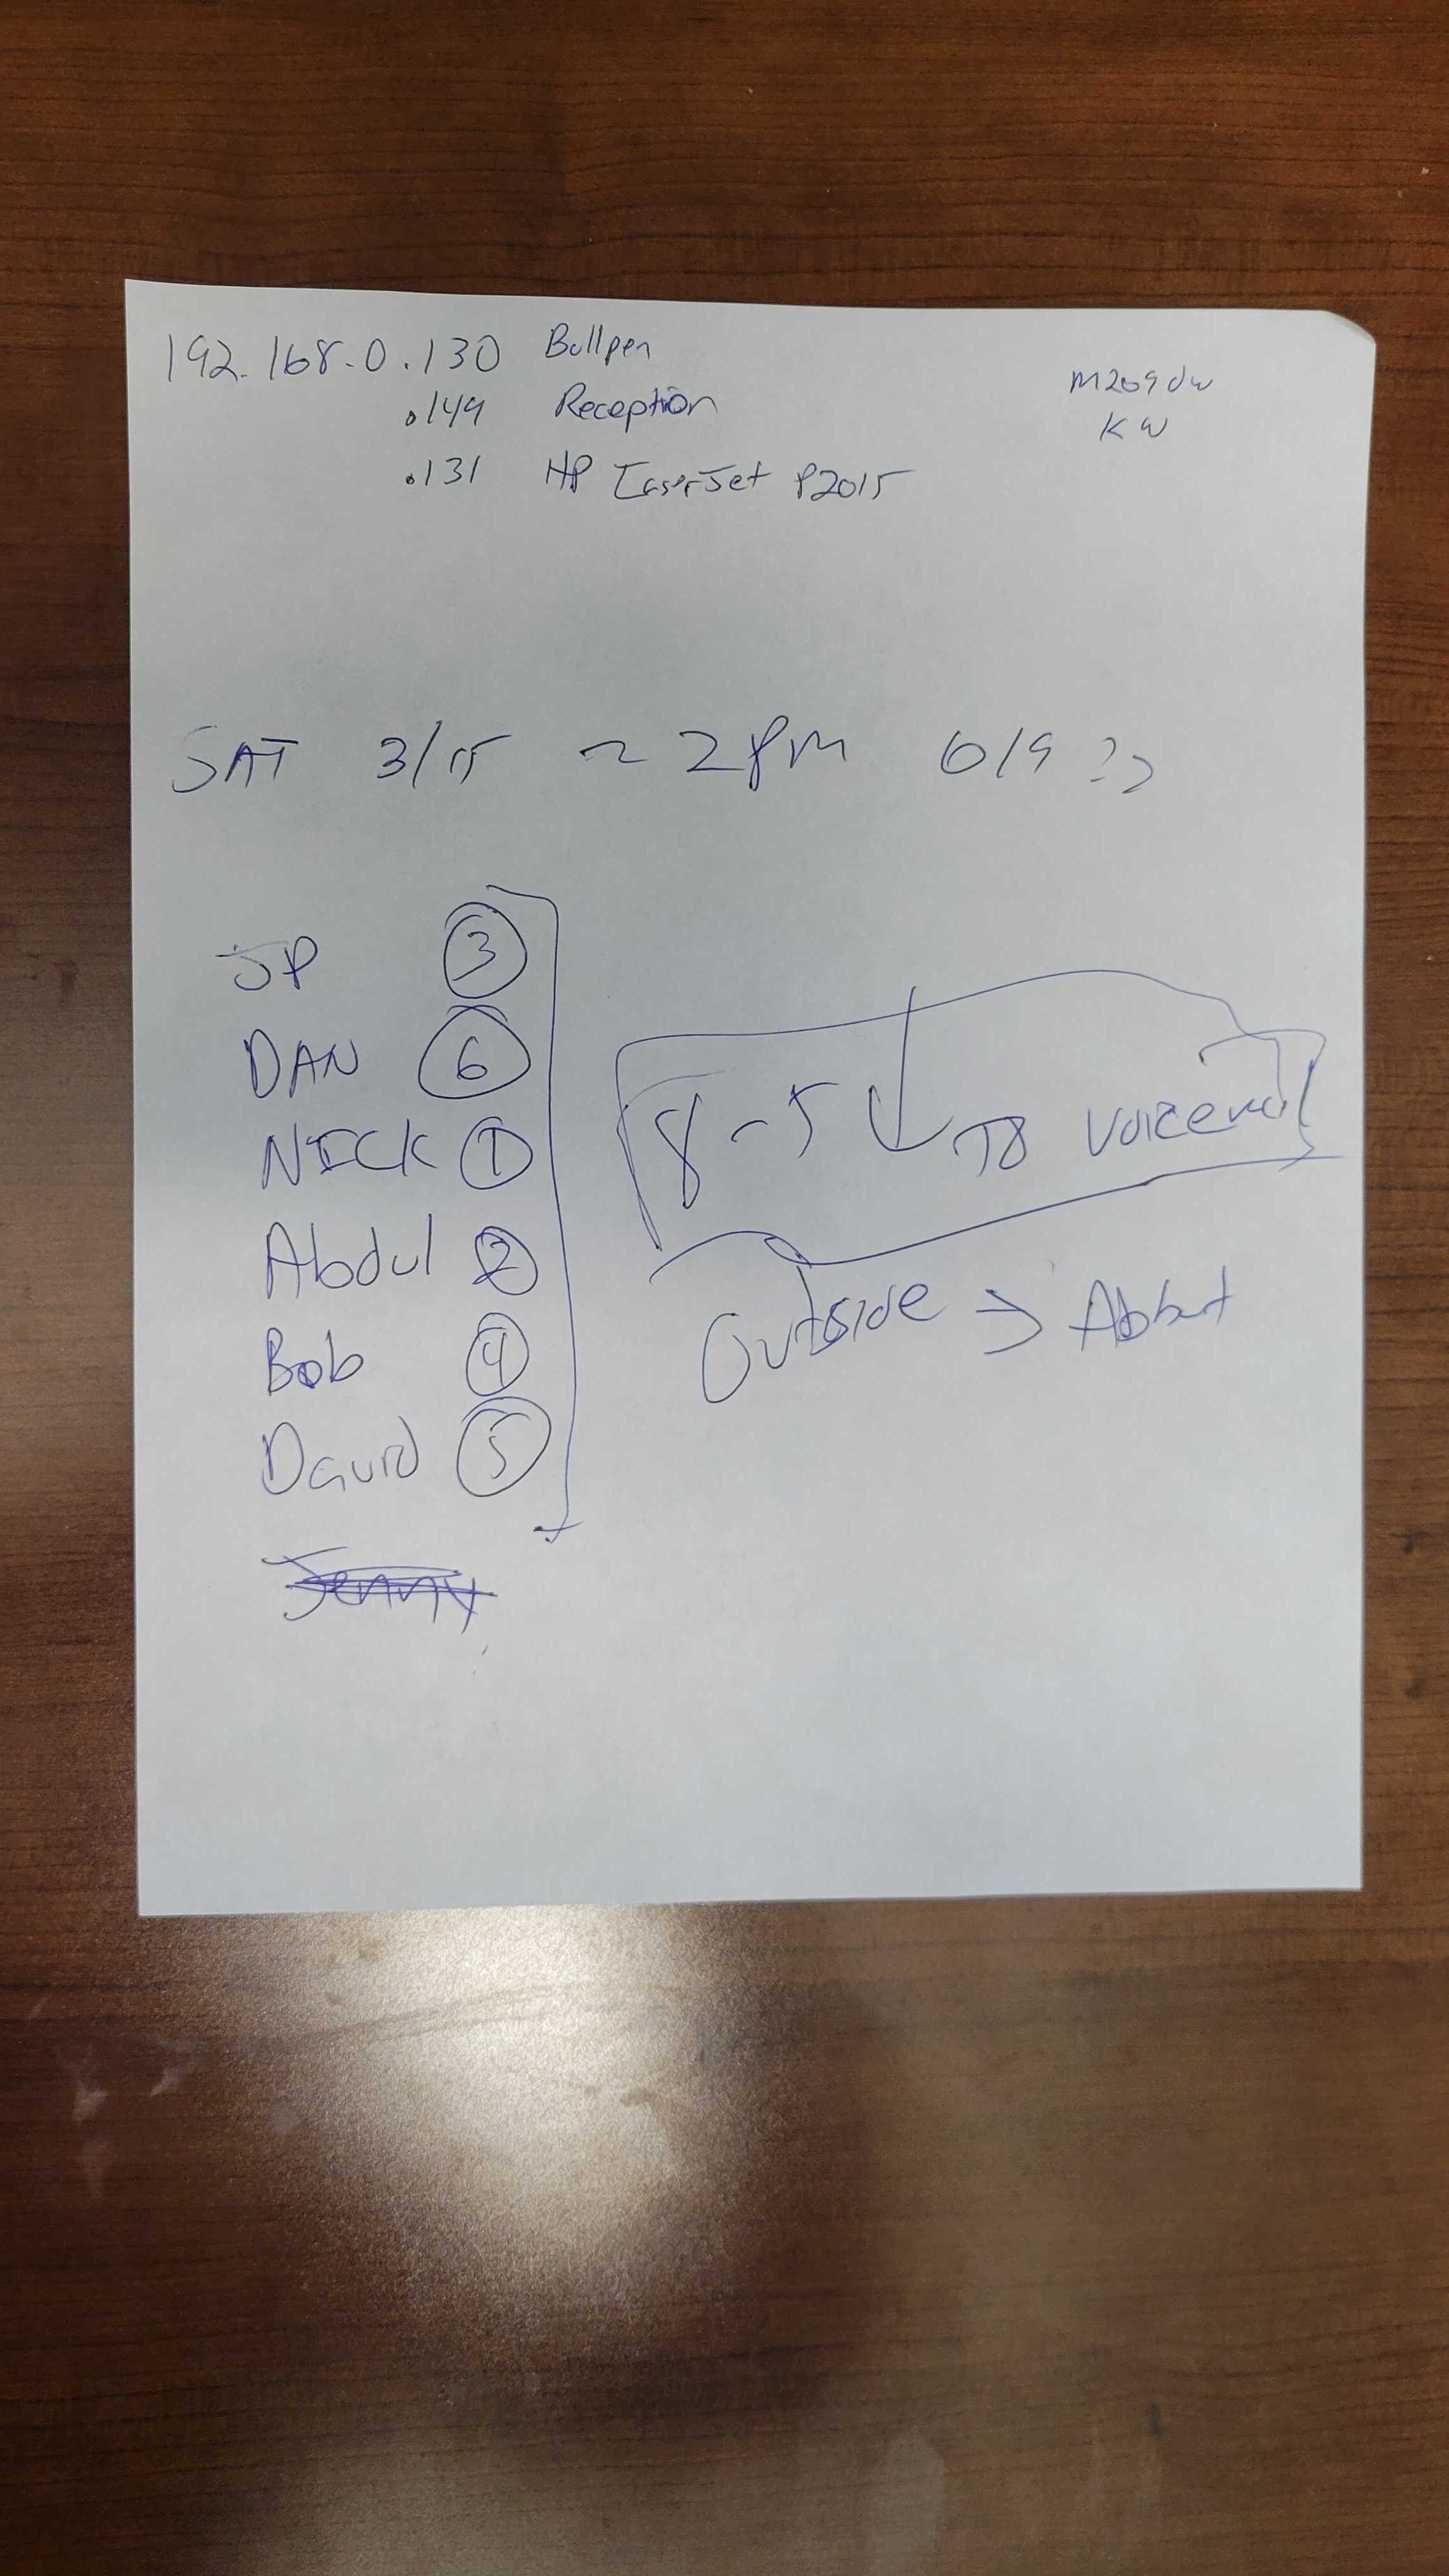 192.168.0.130 Bullpen
.149 Reception
.131 HP LaserJet P2015
M209dw
KW
SAT 3/15 ~ 2PM
JP 3
DAN 6
NICK 1
Abdul 2
Bob 4
David 5
Jenny
8-5 ↓ TO Voicemail
Outside →